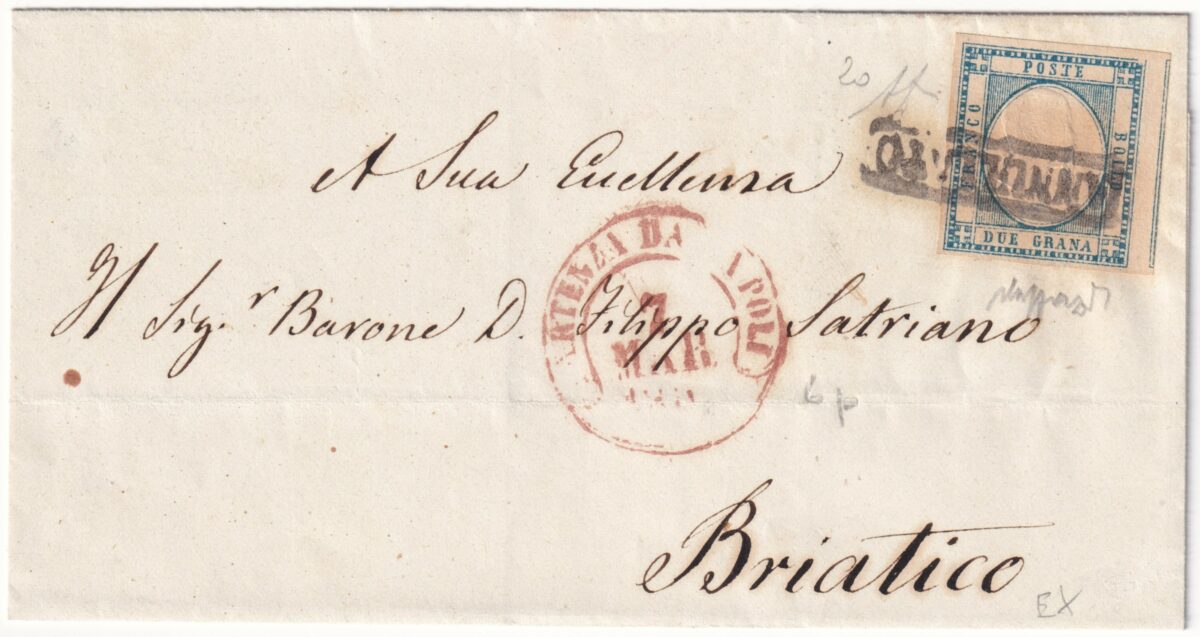 POSTE
FRANCO
BOLLO
DUE GRANA
20
ANNULLATO
A Sua Eccellenza
Il Sig.r Barone D. Filippo Satriano
PARTENZA DA NAPOLI
7
MAR
6 p
Briatico
EX